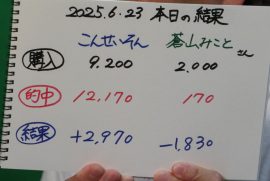 2025.6.23 本日の結果
こんせいそん 蒼山みことさん
購入 9.200 2.000
的中 12,170 170
結果 +2,970 -1,830